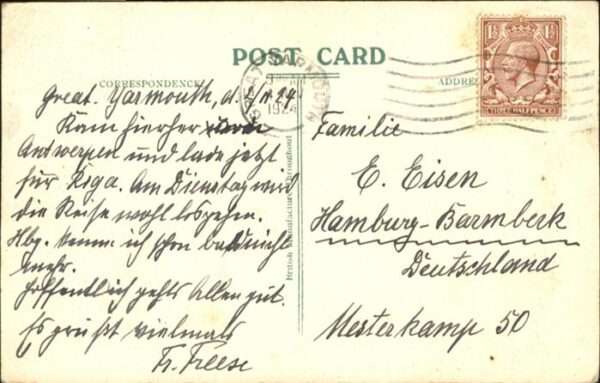 POST CARD
CORRESPONDENCE
ADDRE
GREAT YARMOUTH
1924
1½ 1½
THREE HALFPENCE
British Manufacture throughout
Great. Yarmouth, d.
Kam hierher von
Antwerpen und lade jetzt
für Riga. Am Dienstag wird
die Reise wohl losgehen.
Hbg. kenne ich schon bald nicht
mehr.
Hoffentlich gehts Allen gut.
Es grüßt vielmals
Fr. Freese
Familie
E. Eisen
Hamburg-Barmbeck
Deutschland
Mesterkamp 50